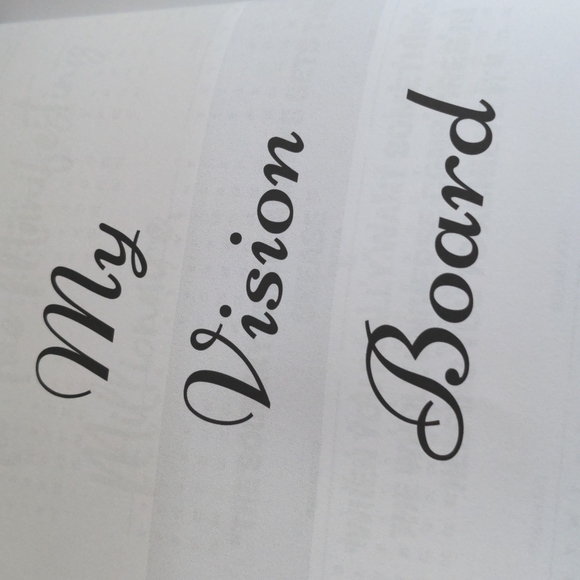 My
Vision
Board